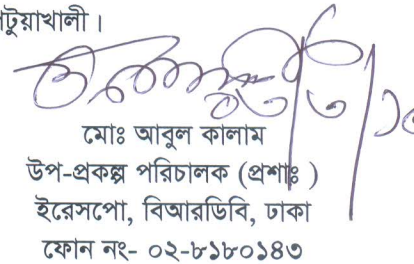 পটুয়াখালী।
মোঃ আবুল কালাম
উপ-প্রকল্প পরিচালক (প্রশাঃ )
ইরেসপো, বিআরডিবি, ঢাকা
ফোন নং- ০২-৮১৮০১৪৩